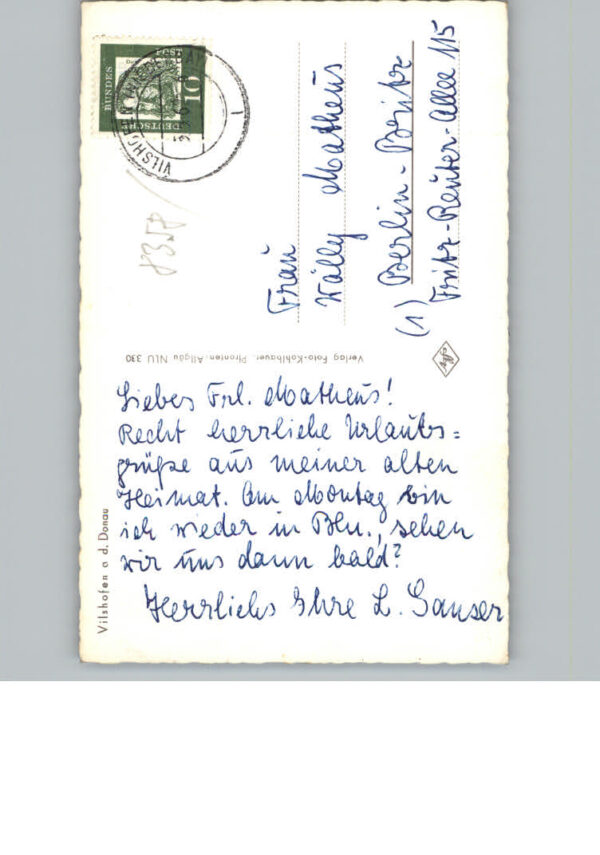 DEUTSCHE
BUNDES
POST
10
VILSHOFEN
8358
Frau
Wally Matheus
(1) Berlin-Britz
Fritz-Reuter-Allee 115
Verlag Foto-Kohlbauer, Pfronten-Allgäu NLU 330
Vilshofen a d. Donau
Liebes Frl. Matheus!
Recht herzliche Urlaubs=
grüße aus meiner alten
Heimat. Am Montag bin
ich wieder in Bln., sehen
wir uns dann bald?
Herzlichst Ihre L. Ganser